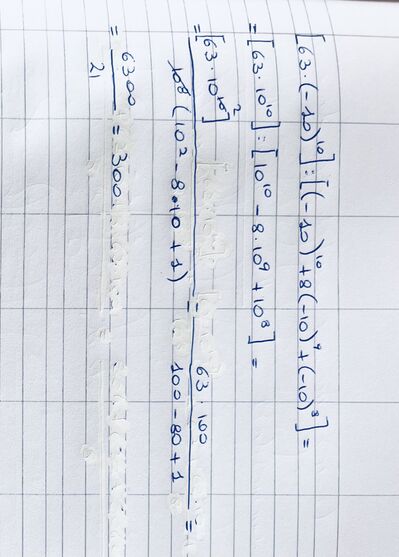 [63·(-10)^10]:[(-10)^10+8(-10)^9+(-10)^8]=
=[63·10^10]:[10^10-8·10^9+10^8]=
=[63·10^10]^2/10^8(10^2-8·10+1)=63·100/100-80+1=
=6300/21=300